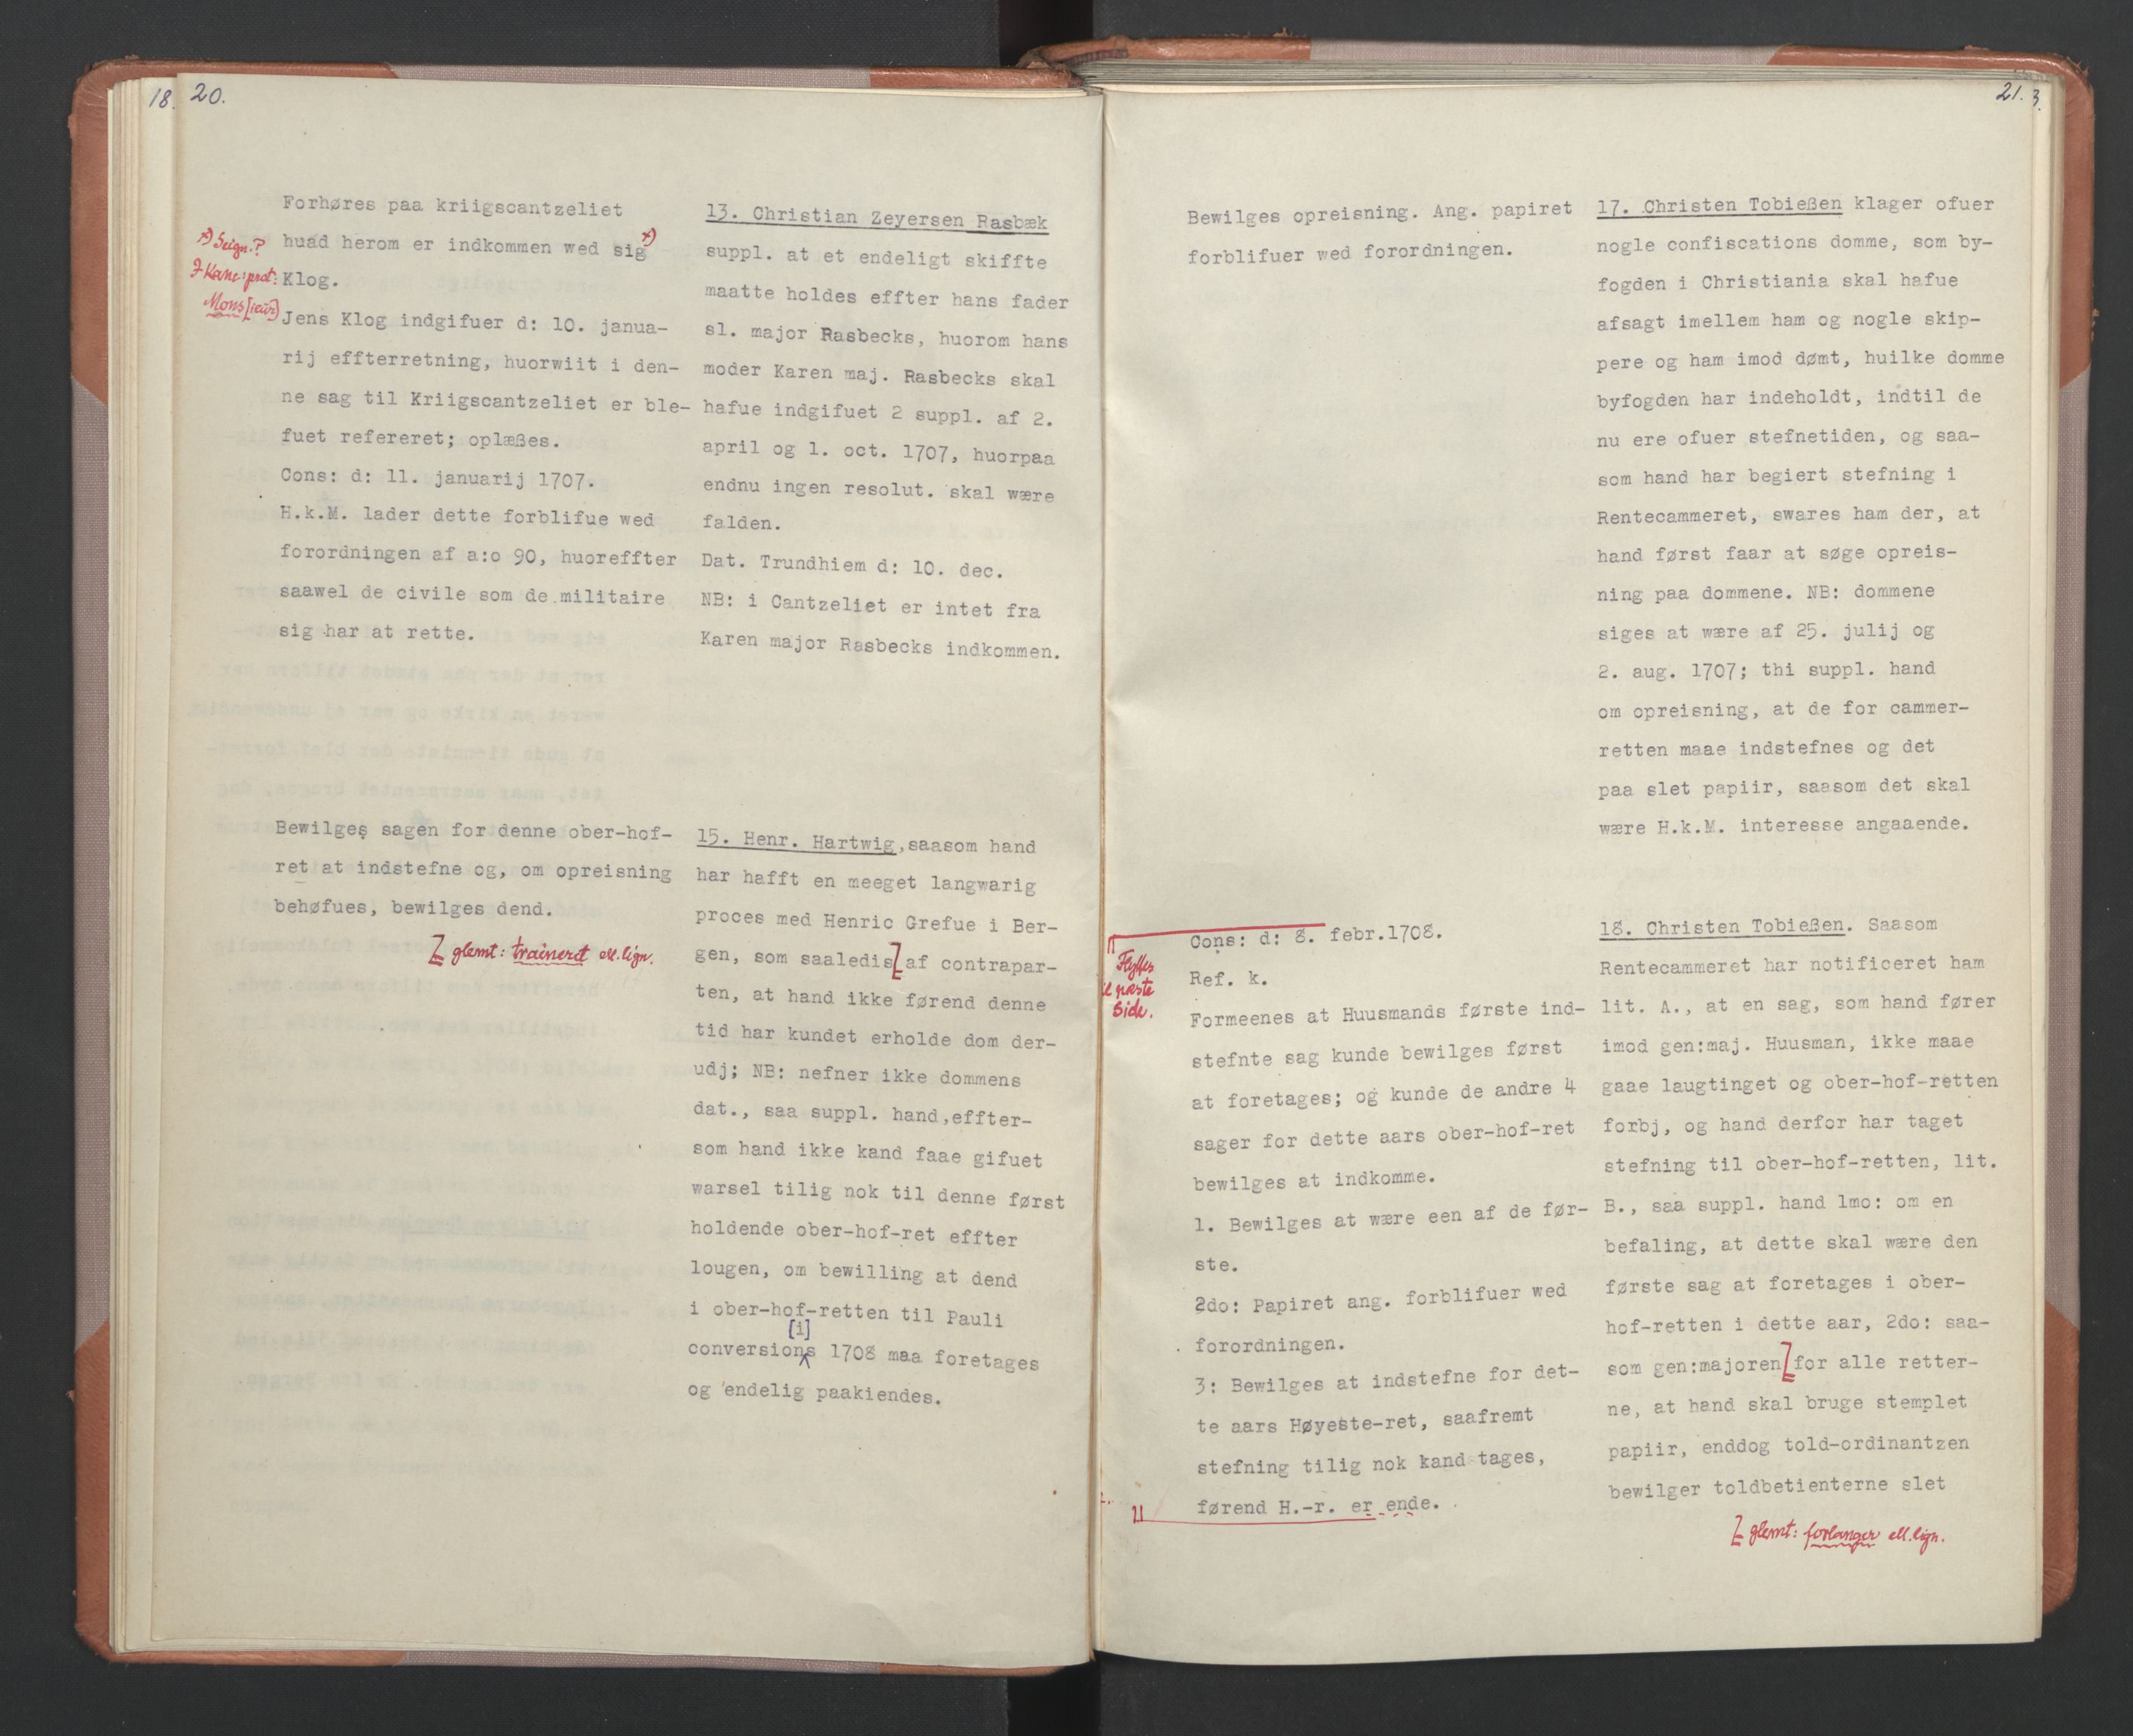 18.
20.
Forhøres paa kriigscantzeliet
huad herom er indkommen wed sig x)
Klog.
x) Seign.?
Kanc: prot:
Mons[ieur]
Jens Klog indgifuer d: 10. janua-
rij effterretning, huorwiit i den-
ne sag til Kriigscantzeliet er ble-
fuet refereret; oplæßes.
Cons: d: 11. januarij 1707.
H.k.M. lader dette forblifue wed
forordningen af a:o 90, huoreffter
saawel de civile som de militaire
sig har at rette.
13. Christian Zeyersen Rasbæk
suppl. at et endeligt skiffte
maatte holdes effter hans fader
sl. major Rasbecks, huorom hans
moder Karen maj. Rasbecks skal
hafue indgifuet 2 suppl. af 2.
april og 1. oct. 1707, huorpaa
endnu ingen resolut. skal wære
falden.
Dat. Trundhiem d: 10. dec.
NB: i Cantzeliet er intet fra
Karen major Rasbecks indkommen.
Bewilges sagen for denne ober-hof-
ret at indstefne og, om opreisning
behøfues, bewilges dend.
[ glemt: traineret ell. lign.
15. Henr. Hartwig, saasom hand
har hafft en meeget langwarig
proces med Henric Grefue i Ber-
gen, som saaledis [ af contrapar-
ten, at hand ikke førend denne
tid har kundet erholde dom der-
udj; NB: nefner ikke dommens
dat., saa suppl. hand, effter-
som hand ikke kand faae gifuet
warsel tilig nok til denne først
holdende ober-hof-ret effter
lougen, om bewilling at dend
i ober-hof-retten til Pauli
[i]
conversions 1708 maa foretages
og endelig paakiendes.
21.
3.
Bewilges opreisning. Ang. papiret
forblifuer wed forordningen.
17. Christen Tobießen klager ofuer
nogle confiscations domme, som by-
fogden i Christiania skal hafue
afsagt imellem ham og nogle skip-
pere og ham imod dømt, huilke domme
byfogden har indeholdt, indtil de
nu ere ofuer stefnetiden, og saa-
som hand har begiert stefning i
Rentecammeret, swares ham der, at
hand først faar at søge opreis-
ning paa dommene. NB: dommene
siges at wære af 25. julij og
2. aug. 1707; thi suppl. hand
om opreisning, at de for cammer-
retten maae indstefnes og det
paa slet papiir, saasom det skal
wære H.k.M. interesse angaaende.
Flyttes
til næste
Side.
Cons: d: 8. febr.1708.
Ref. k.
Formeenes at Huusmands første ind-
stefnte sag kunde bewilges først
at foretages; og kunde de andre 4
sager for dette aars ober-hof-ret
bewilges at indkomme.
1. Bewilges at wære een af de før-
ste.
2do: Papiret ang. forblifuer wed
forordningen.
3: Bewilges at indstefne for det-
te aars Høyeste-ret, saafremt
stefning tilig nok kand tages,
førend H.-r. er ende.
18. Christen Tobießen. Saasom
Rentecammeret har notificeret ham
lit. A., at en sag, som hand fører
imod gen:maj. Huusman, ikke maae
gaae laugtinget og ober-hof-retten
forbj, og hand derfor har taget
stefning til ober-hof-retten, lit.
B., saa suppl. hand 1mo: om en
befaling, at dette skal wære den
første sag at foretages i ober-
hof-retten i dette aar, 2do: saa-
som gen:majoren [ for alle retter-
ne, at hand skal bruge stemplet
papiir, enddog told-ordinantzen
bewilger toldbetienterne slet
[ glemt: forlanger ell. lign.